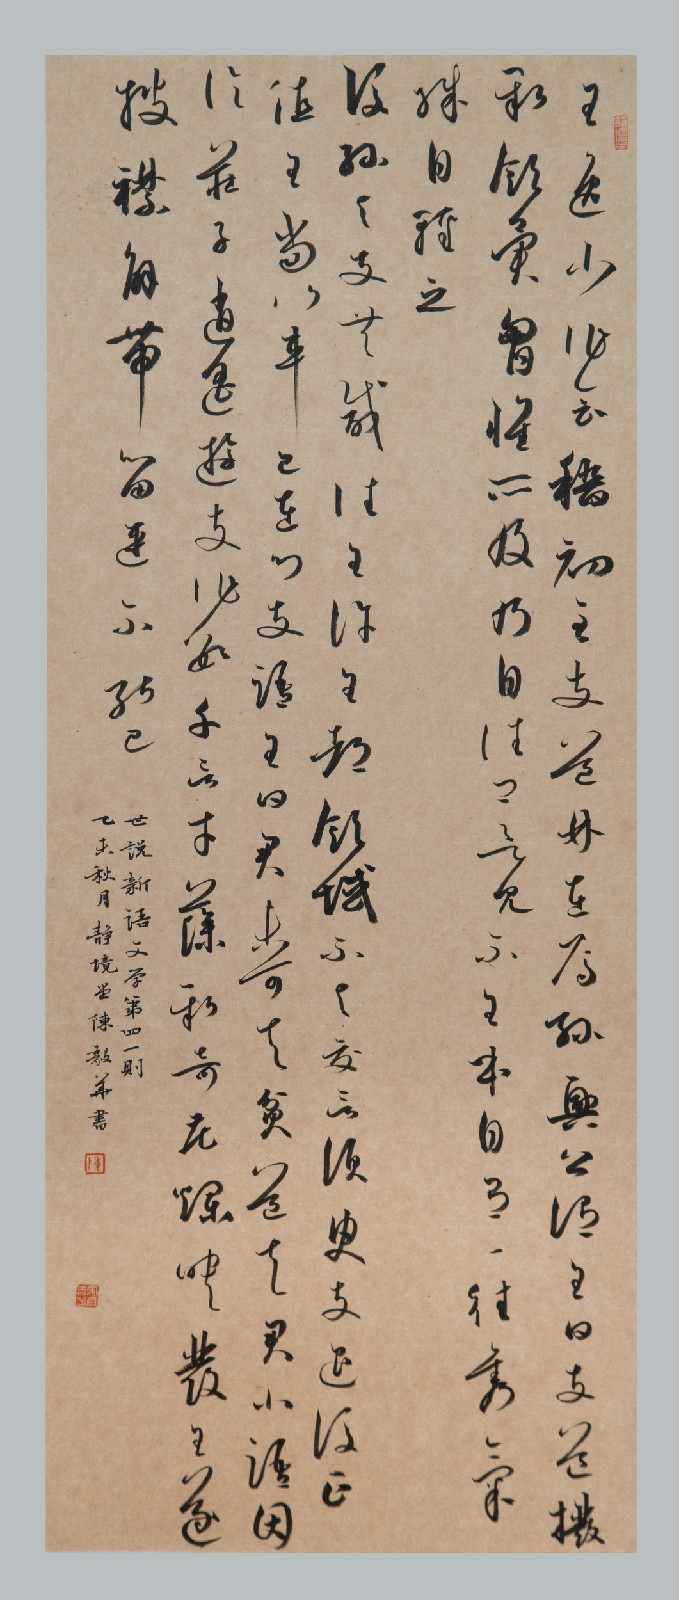 王逸少作會稽初至支道林在焉孫興公謂王曰支道拔
新領異胸懷所及乃自佳卿欲見不王本自有一往雋氣
殊自輕之
後孫與支共載往王許王都領域不與交言須臾支退後正
值王當行車已在門支語王曰君未可去貧道與君小語因
論莊子逍遙遊支作數千言才藻新奇花爛映發王遂
披襟解帶留連不能已
世説新語文学第四一則
乙未秋月靜境堂陳毅華書